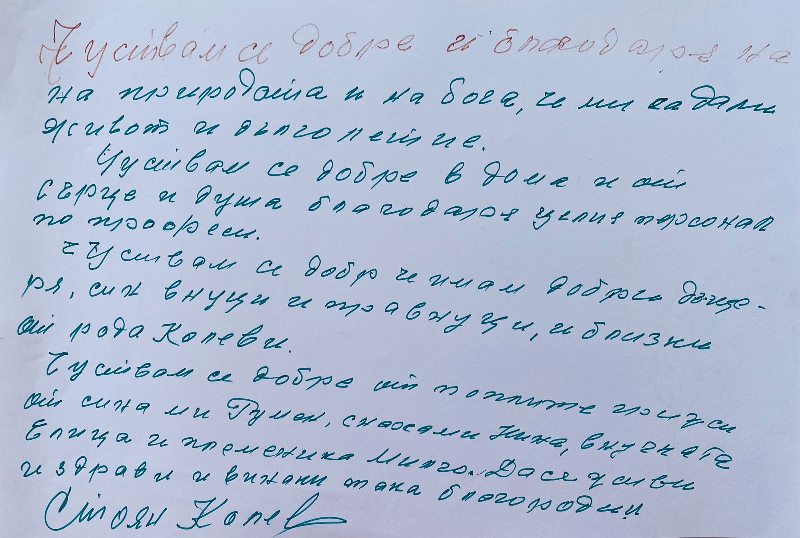 Чуствам се добре и благодаря на
на природата и на бога, че ми са дали
живот и дълголетие.
Чуствам се добре в дома и от
сърце и душа благодаря целия персонал
по професи.
Чуствам се добр че имам добри дъще-
ря, син внуци и правнуци, и близки
от рода Колеви.
Чуствам се добре от топлите
от сина ми Румен, снахами внучката
Елица и племеника Минчо. Да се живи
и здрави и винаги така благородни
Стоян Колев